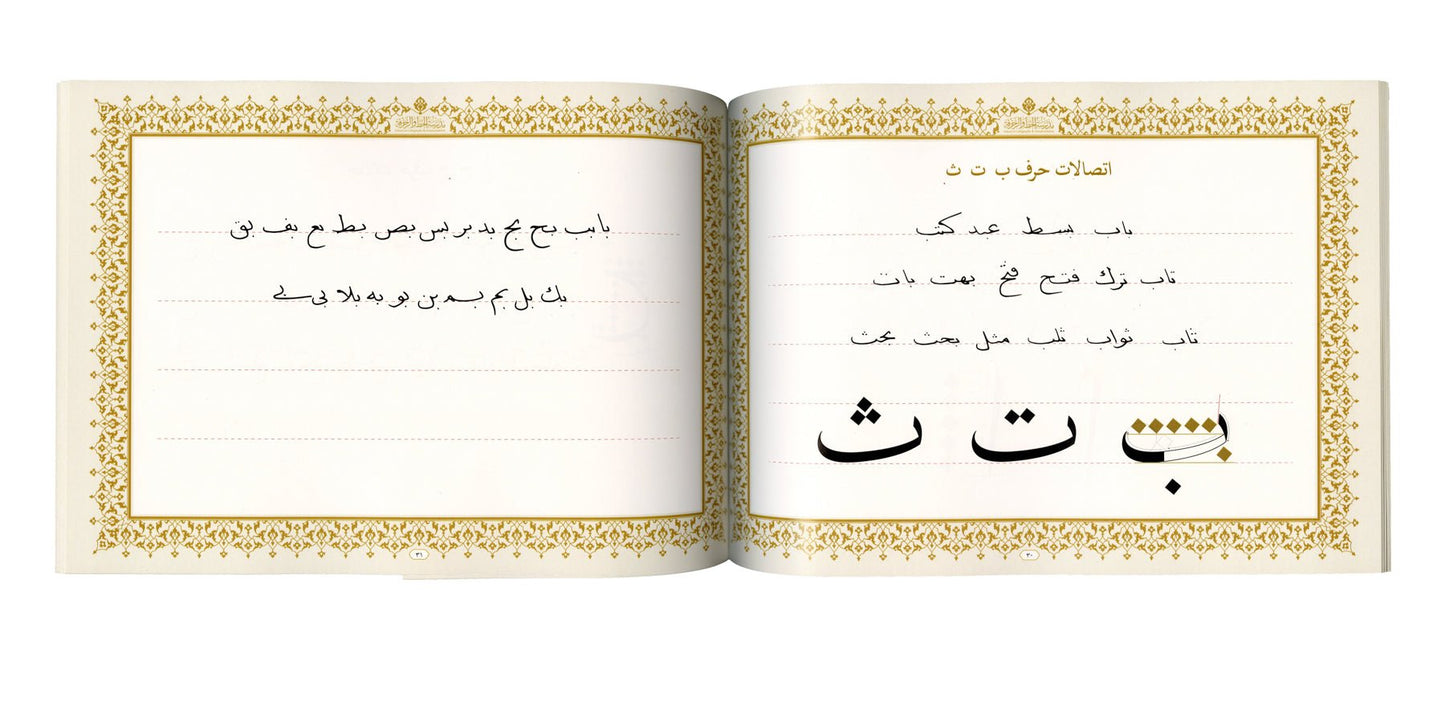 اتصالات حرف ب ت ث
باب بسط عبد كتب
تاب ترك فتح فتح بهت بات
ثاب ثواب ثلب مثل بحث بحث
ب ت ث
٣٠
با بب بح بج بد بر بس بص بط بع بف بق
بك بل بم بم بن بو به بلا بى بے
٣١